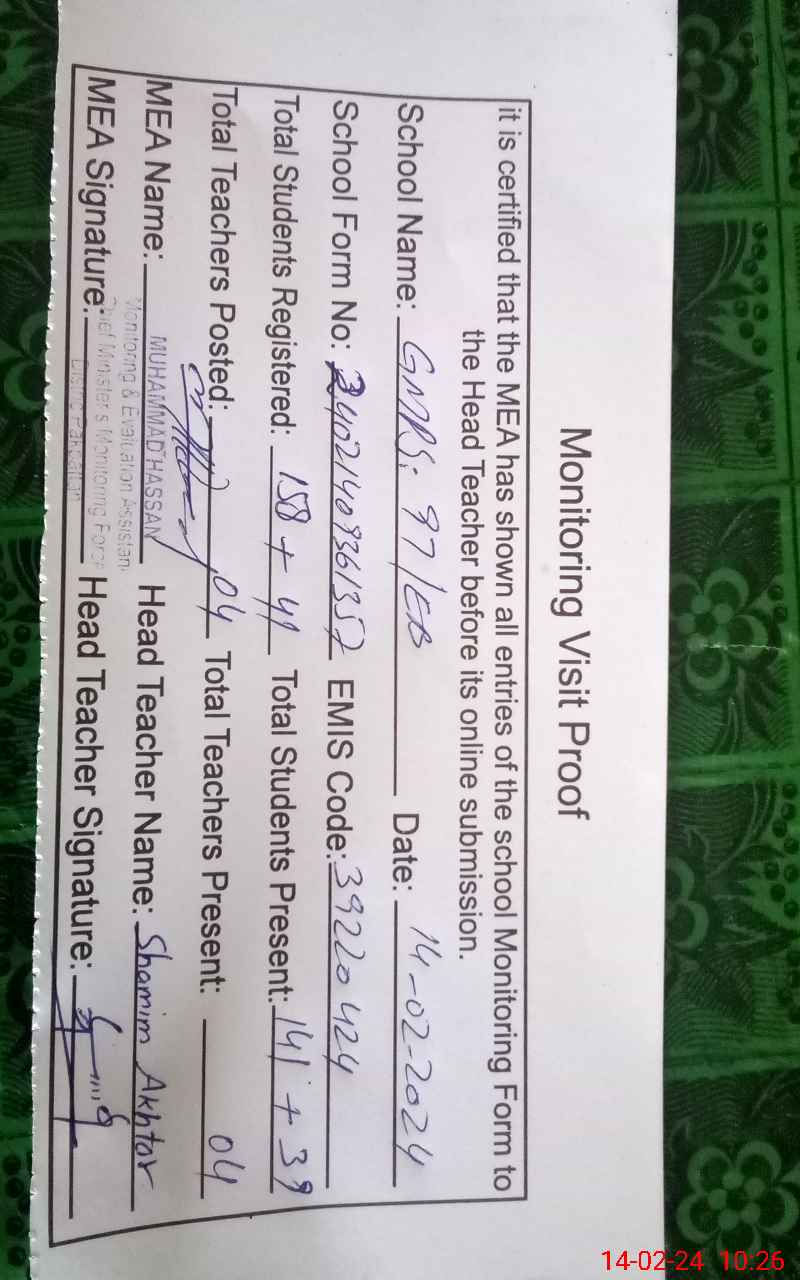 Monitoring Visit Proof
it is certified that the MEA has shown all entries of the school Monitoring Form to
the Head Teacher before its online submission.
School Name: GMPS: 97/EB Date: 14-02-2024
School Form No: EMIS Code: 39220424
Total Students Registered: 158 + 41 Total Students Present: 141 + 39
Total Teachers Posted: 04 Total Teachers Present: 04
MEA Name: MUHAMMAD HASSAN Head Teacher Name: Shamim Akhtar
Monitoring & Evaluation Assistan
Chief Minister's Monitoring Force
MEA Signature: Head Teacher Signature:
District Pakpattan
14-02-24 10:26